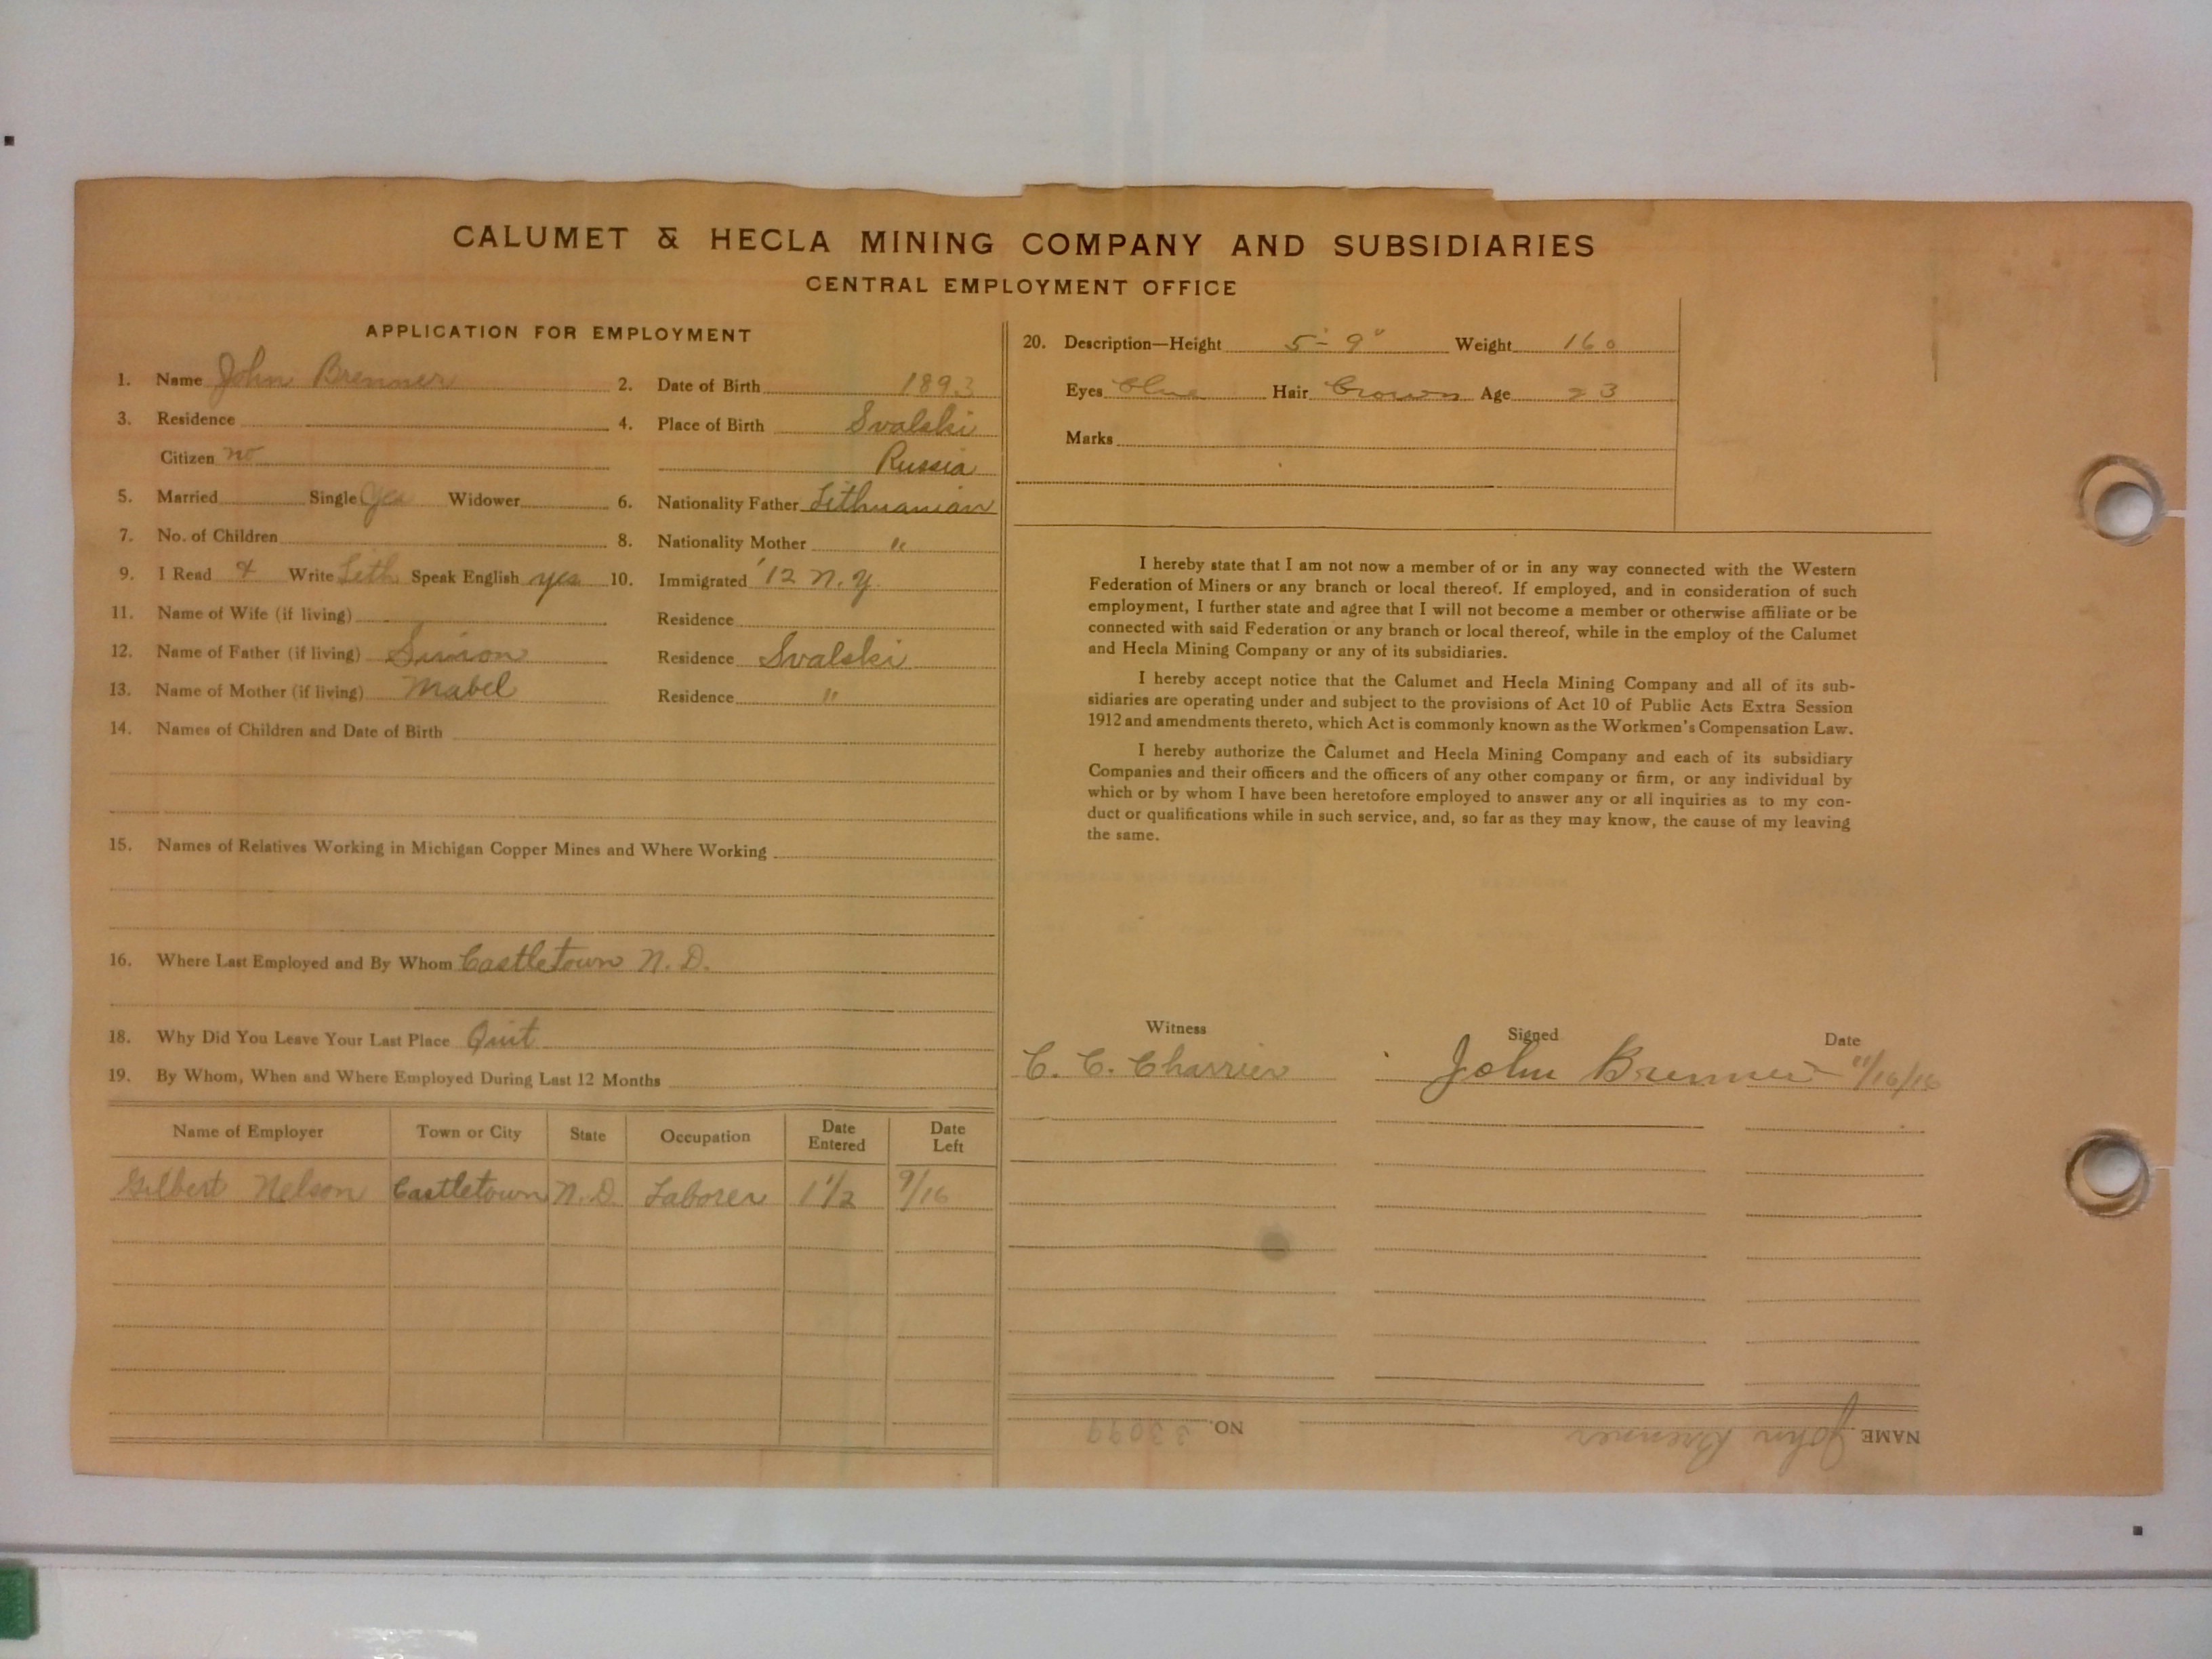 CALUMET & HECLA MINING COMPANY AND SUBSIDIARIES
CENTRAL EMPLOYMENT OFFICE
APPLICATION FOR EMPLOYMENT
1. Name John Brenner 2. Date of Birth 1893
3. Residence 4. Place of Birth Svalski
Citizen no Russia
5. Married Single Yes Widower 6. Nationality Father Lithuanian
7. No. of Children 8. Nationality Mother "
9. I Read & Write Lith Speak English yes 10. Immigrated '12 N.Y.
11. Name of Wife (if living) Residence
12. Name of Father (if living) Simon Residence Svalski
13. Name of Mother (if living) Mabel Residence "
14. Names of Children and Date of Birth
15. Names of Relatives Working in Michigan Copper Mines and Where Working
16. Where Last Employed and By Whom Castletown N.D.
18. Why Did You Leave Your Last Place Quit
19. By Whom, When and Where Employed During Last 12 Months
Name of Employer Town or City State Occupation Date Entered Date Left
Gilbert Nelson Castletown N.D. Laborer 1 1/2 9/16
20. Description—Height 5'-9" Weight 160
Eyes blue Hair brown Age 23
Marks
I hereby state that I am not now a member of or in any way connected with the Western
Federation of Miners or any branch or local thereof. If employed, and in consideration of such
employment, I further state and agree that I will not become a member or otherwise affiliate or be
connected with said Federation or any branch or local thereof, while in the employ of the Calumet
and Hecla Mining Company or any of its subsidiaries.
I hereby accept notice that the Calumet and Hecla Mining Company and all of its sub-
sidiaries are operating under and subject to the provisions of Act 10 of Public Acts Extra Session
1912 and amendments thereto, which Act is commonly known as the Workmen's Compensation Law.
I hereby authorize the Calumet and Hecla Mining Company and each of its subsidiary
Companies and their officers and the officers of any other company or firm, or any individual by
which or by whom I have been heretofore employed to answer any or all inquiries as to my con-
duct or qualifications while in such service, and, so far as they may know, the cause of my leaving
the same.
Witness Signed Date
C. C. Charrier John Brenner 11/16/16
NAME John Brenner NO. 33099